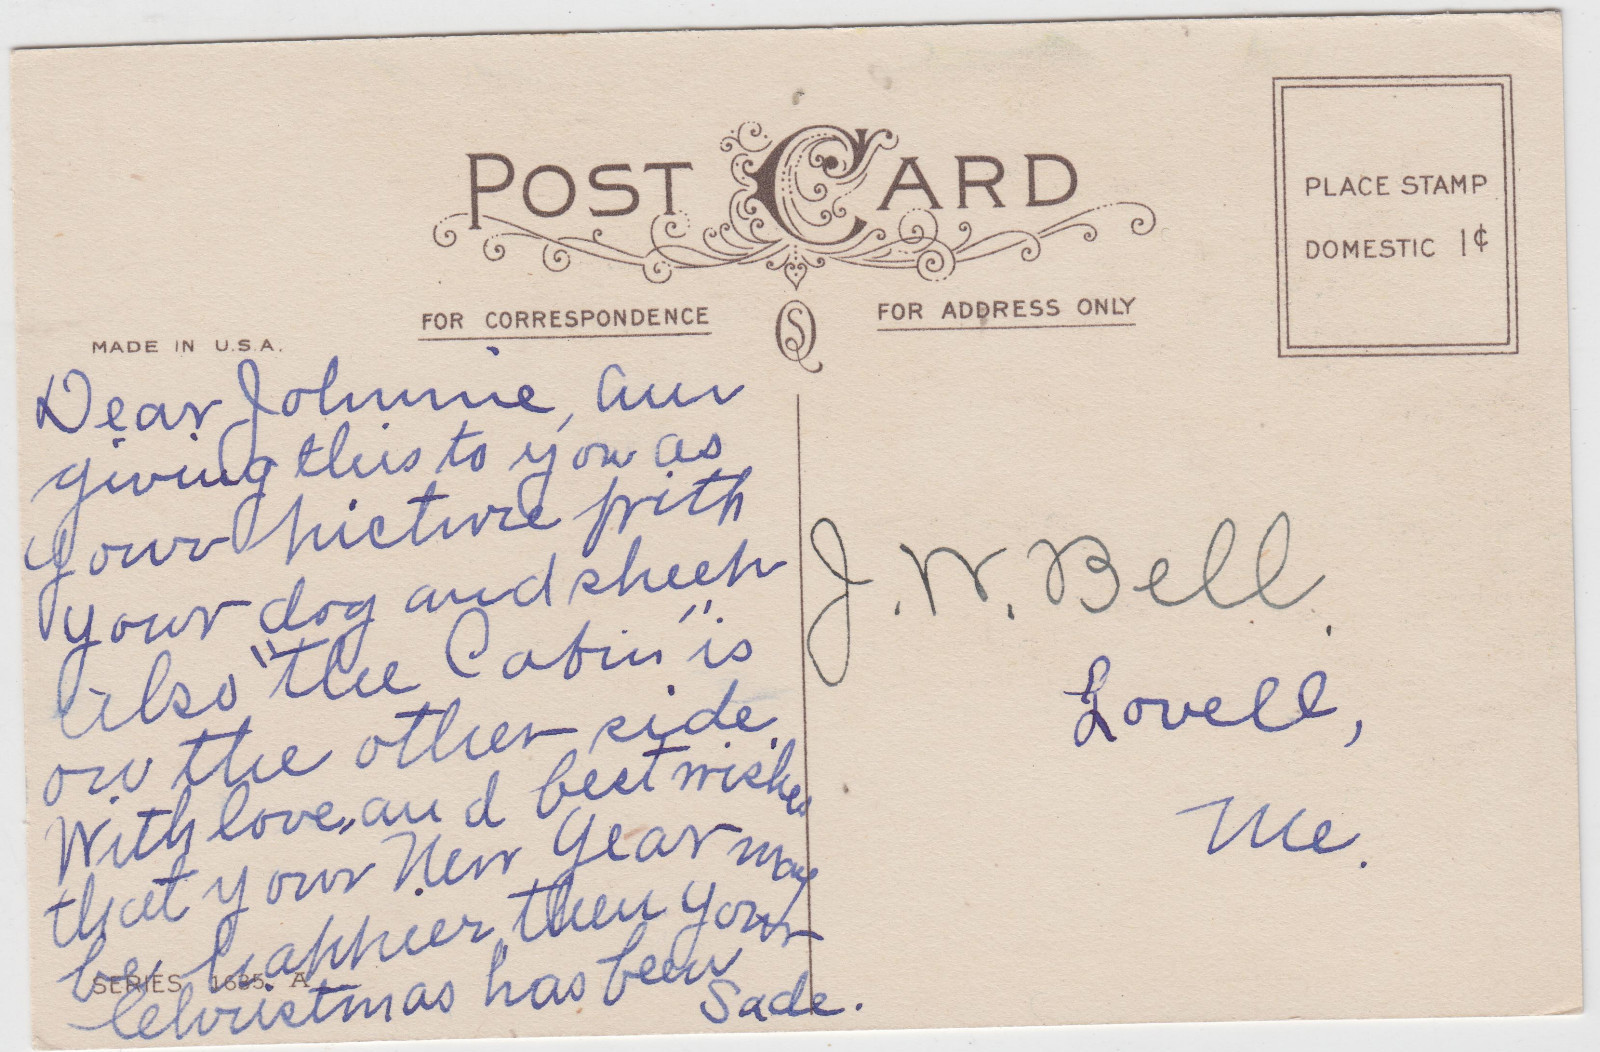 POST CARD
PLACE STAMP
DOMESTIC 1¢
FOR CORRESPONDENCE
FOR ADDRESS ONLY
MADE IN U.S.A.
Dear Johnnie, am
giving this to you as
your picture with
your dog and sheep
Also "the Cabin" is
on the other side.
With love, and best wishes
that your New Year may
be happier then your
Christmas has been
Sade.
SERIES 1685 A
J. W. Bell.
Lovell,
Me.